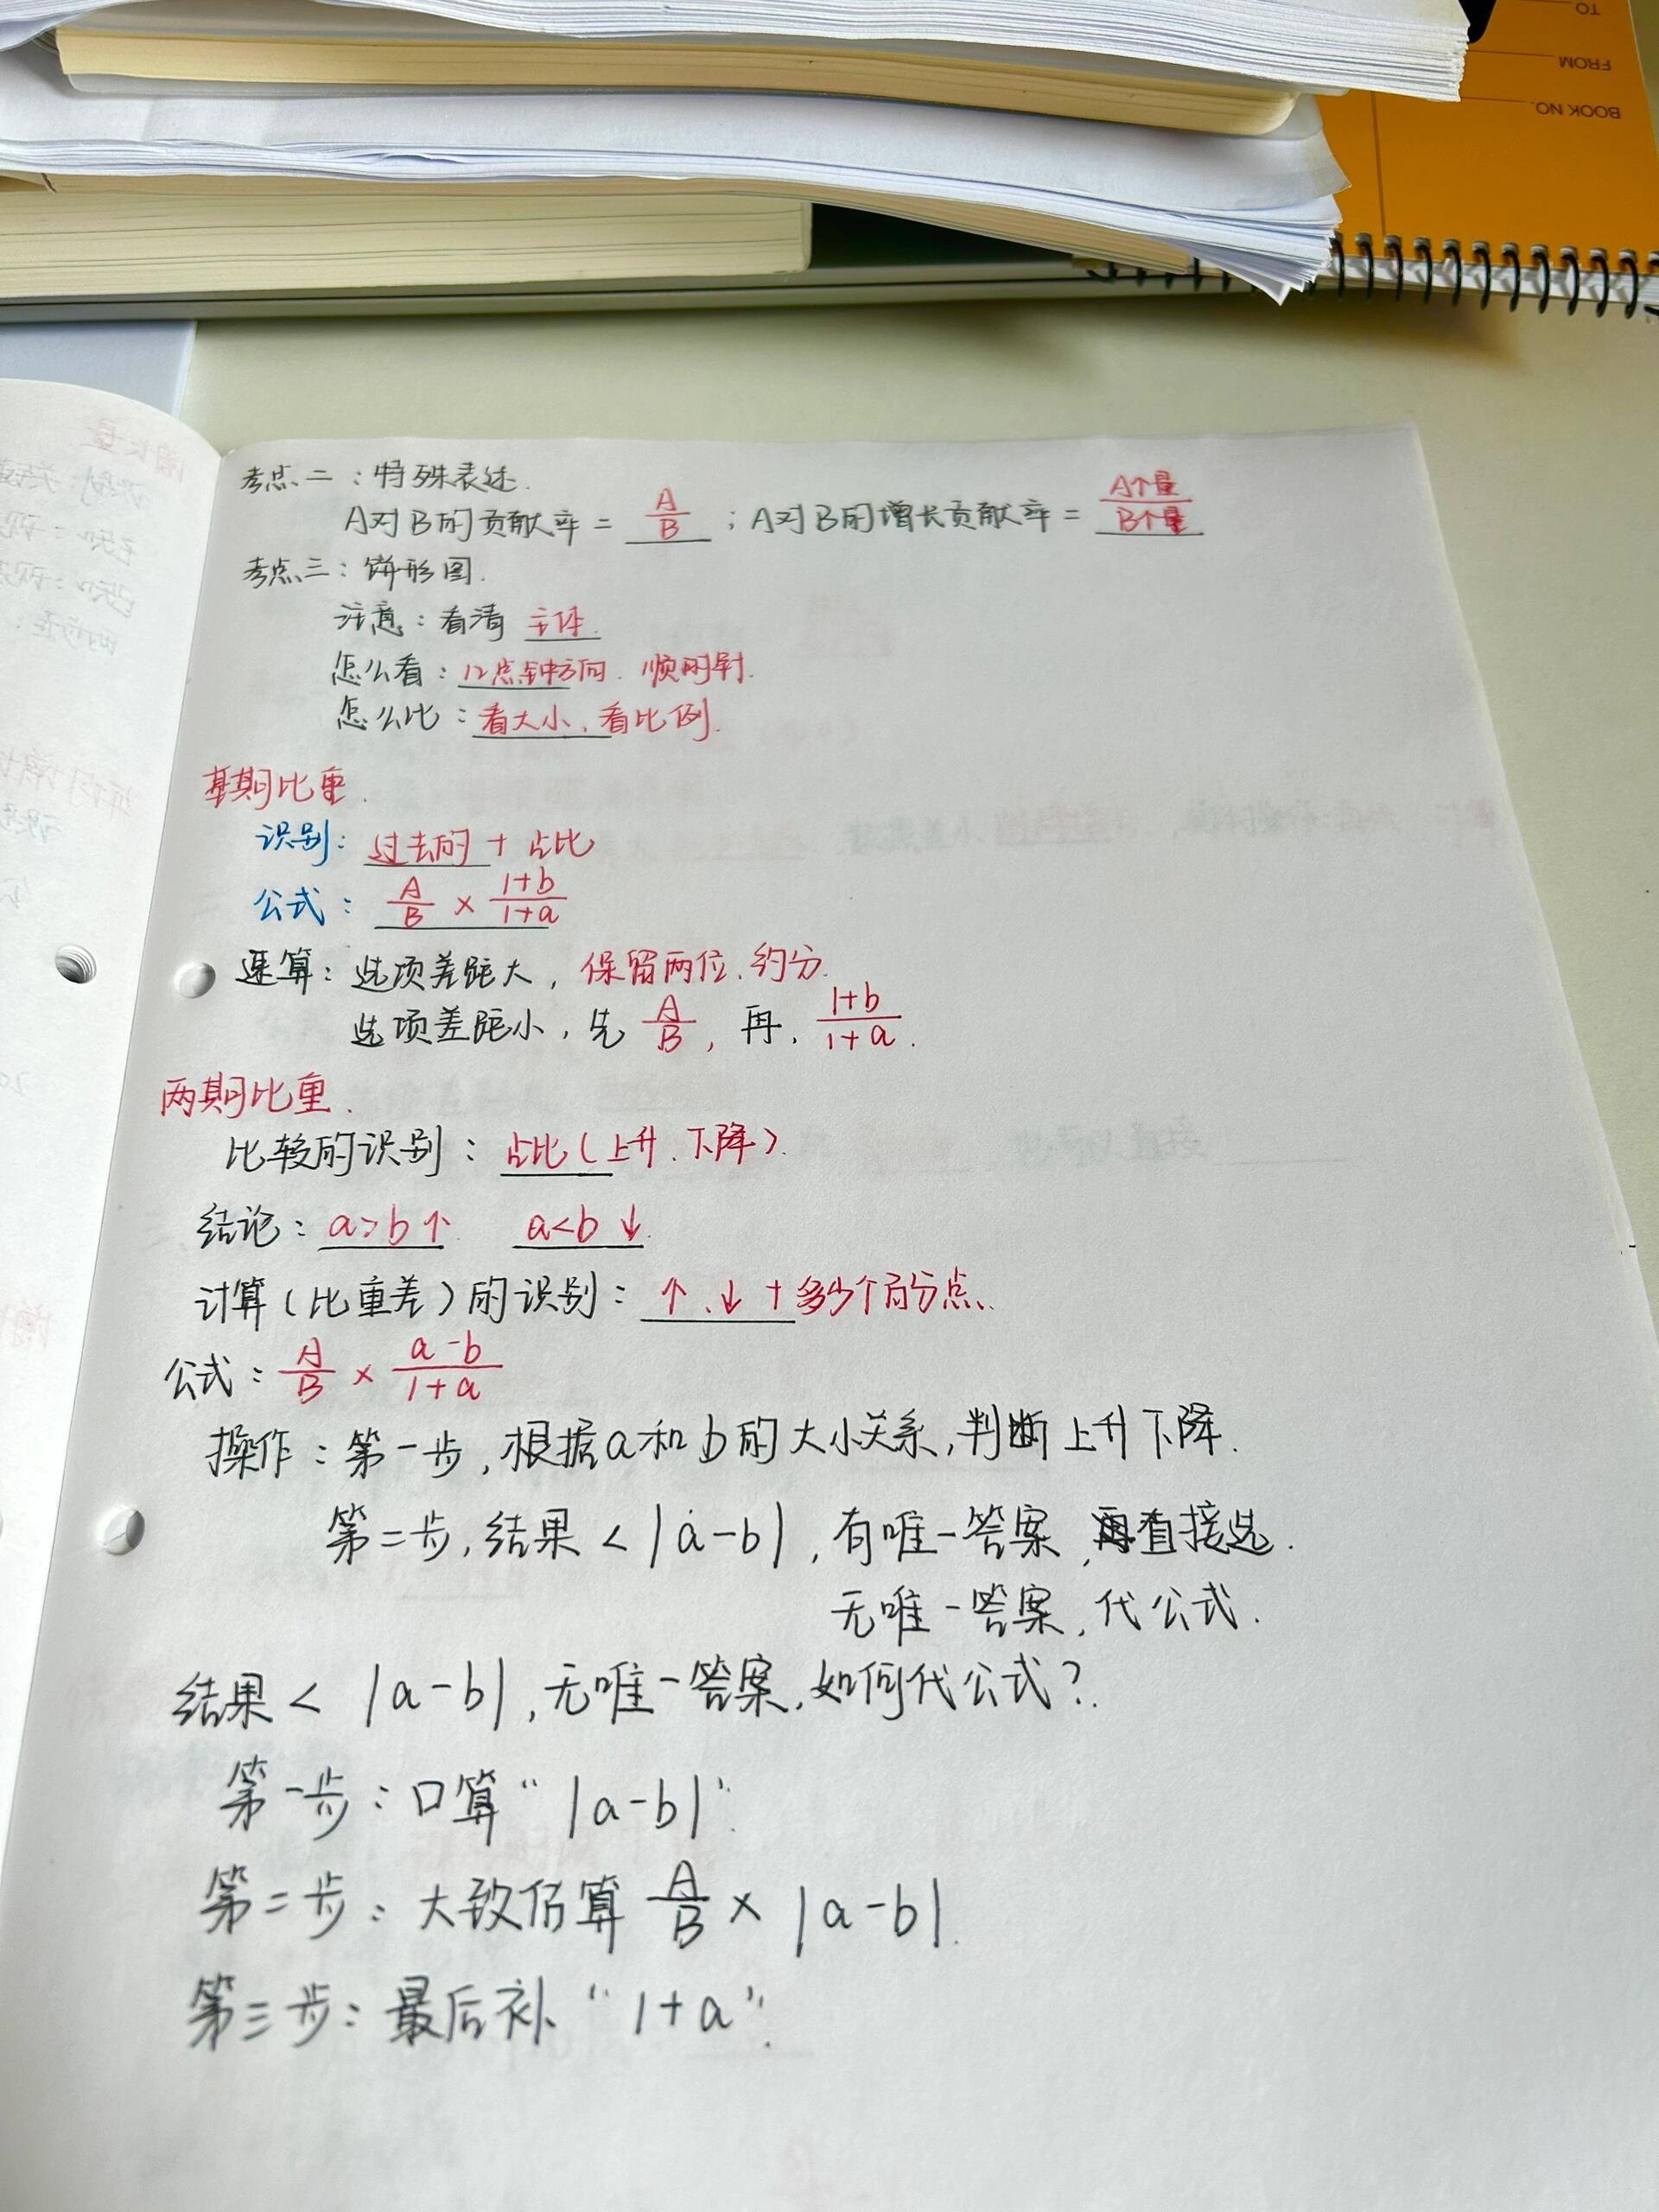 TO
FROM
BOOK NO.
考点二：特殊表述.
A对B的贡献率 = A/B ；A对B的增长贡献率 = A个量/B个量
考点三：饼形图.
注意：看清 主体.
怎么看：12点钟方向. 顺时针.
怎么比：看大小、看比例.
基期比重.
识别：过去的 + 占比
公式：A/B × (1+b)/(1+a)
速算：选项差距大，保留两位、约分.
选项差距小，先 A/B，再、(1+b)/(1+a).
两期比重.
比较的识别：占比（上升、下降）.
结论：a>b↑ a<b↓.
计算（比重差）的识别：↑、↓ + 多少个百分点、
公式：A/B × (a-b)/(1+a)
操作：第一步，根据a和b的大小关系，判断上升下降.
第二步，结果 < |a-b|，有唯一答案，直接选.
无唯一答案，代公式.
结果 < |a-b|，无唯一答案，如何代公式？.
第一步：口算“|a-b|”.
第二步：大致估算 A/B × |a-b|.
第三步：最后补“1+a”.